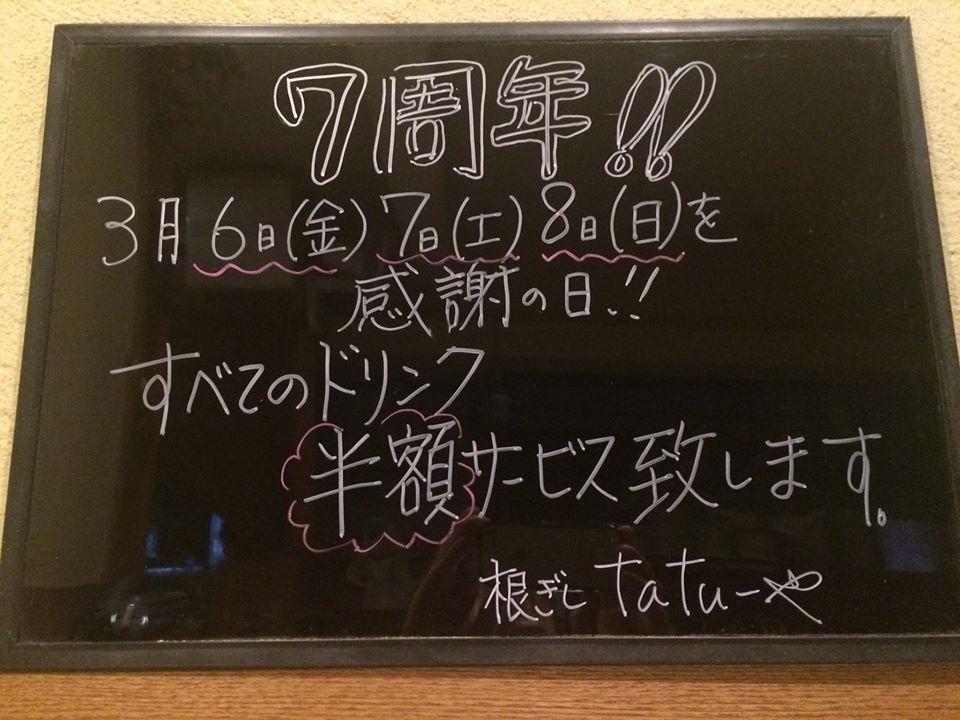 7周年!!
3月6日(金)7日(土)8日(日)を
感謝の日!!
すべてのドリンク
半額サービス致します。
根ぎし tatuーや